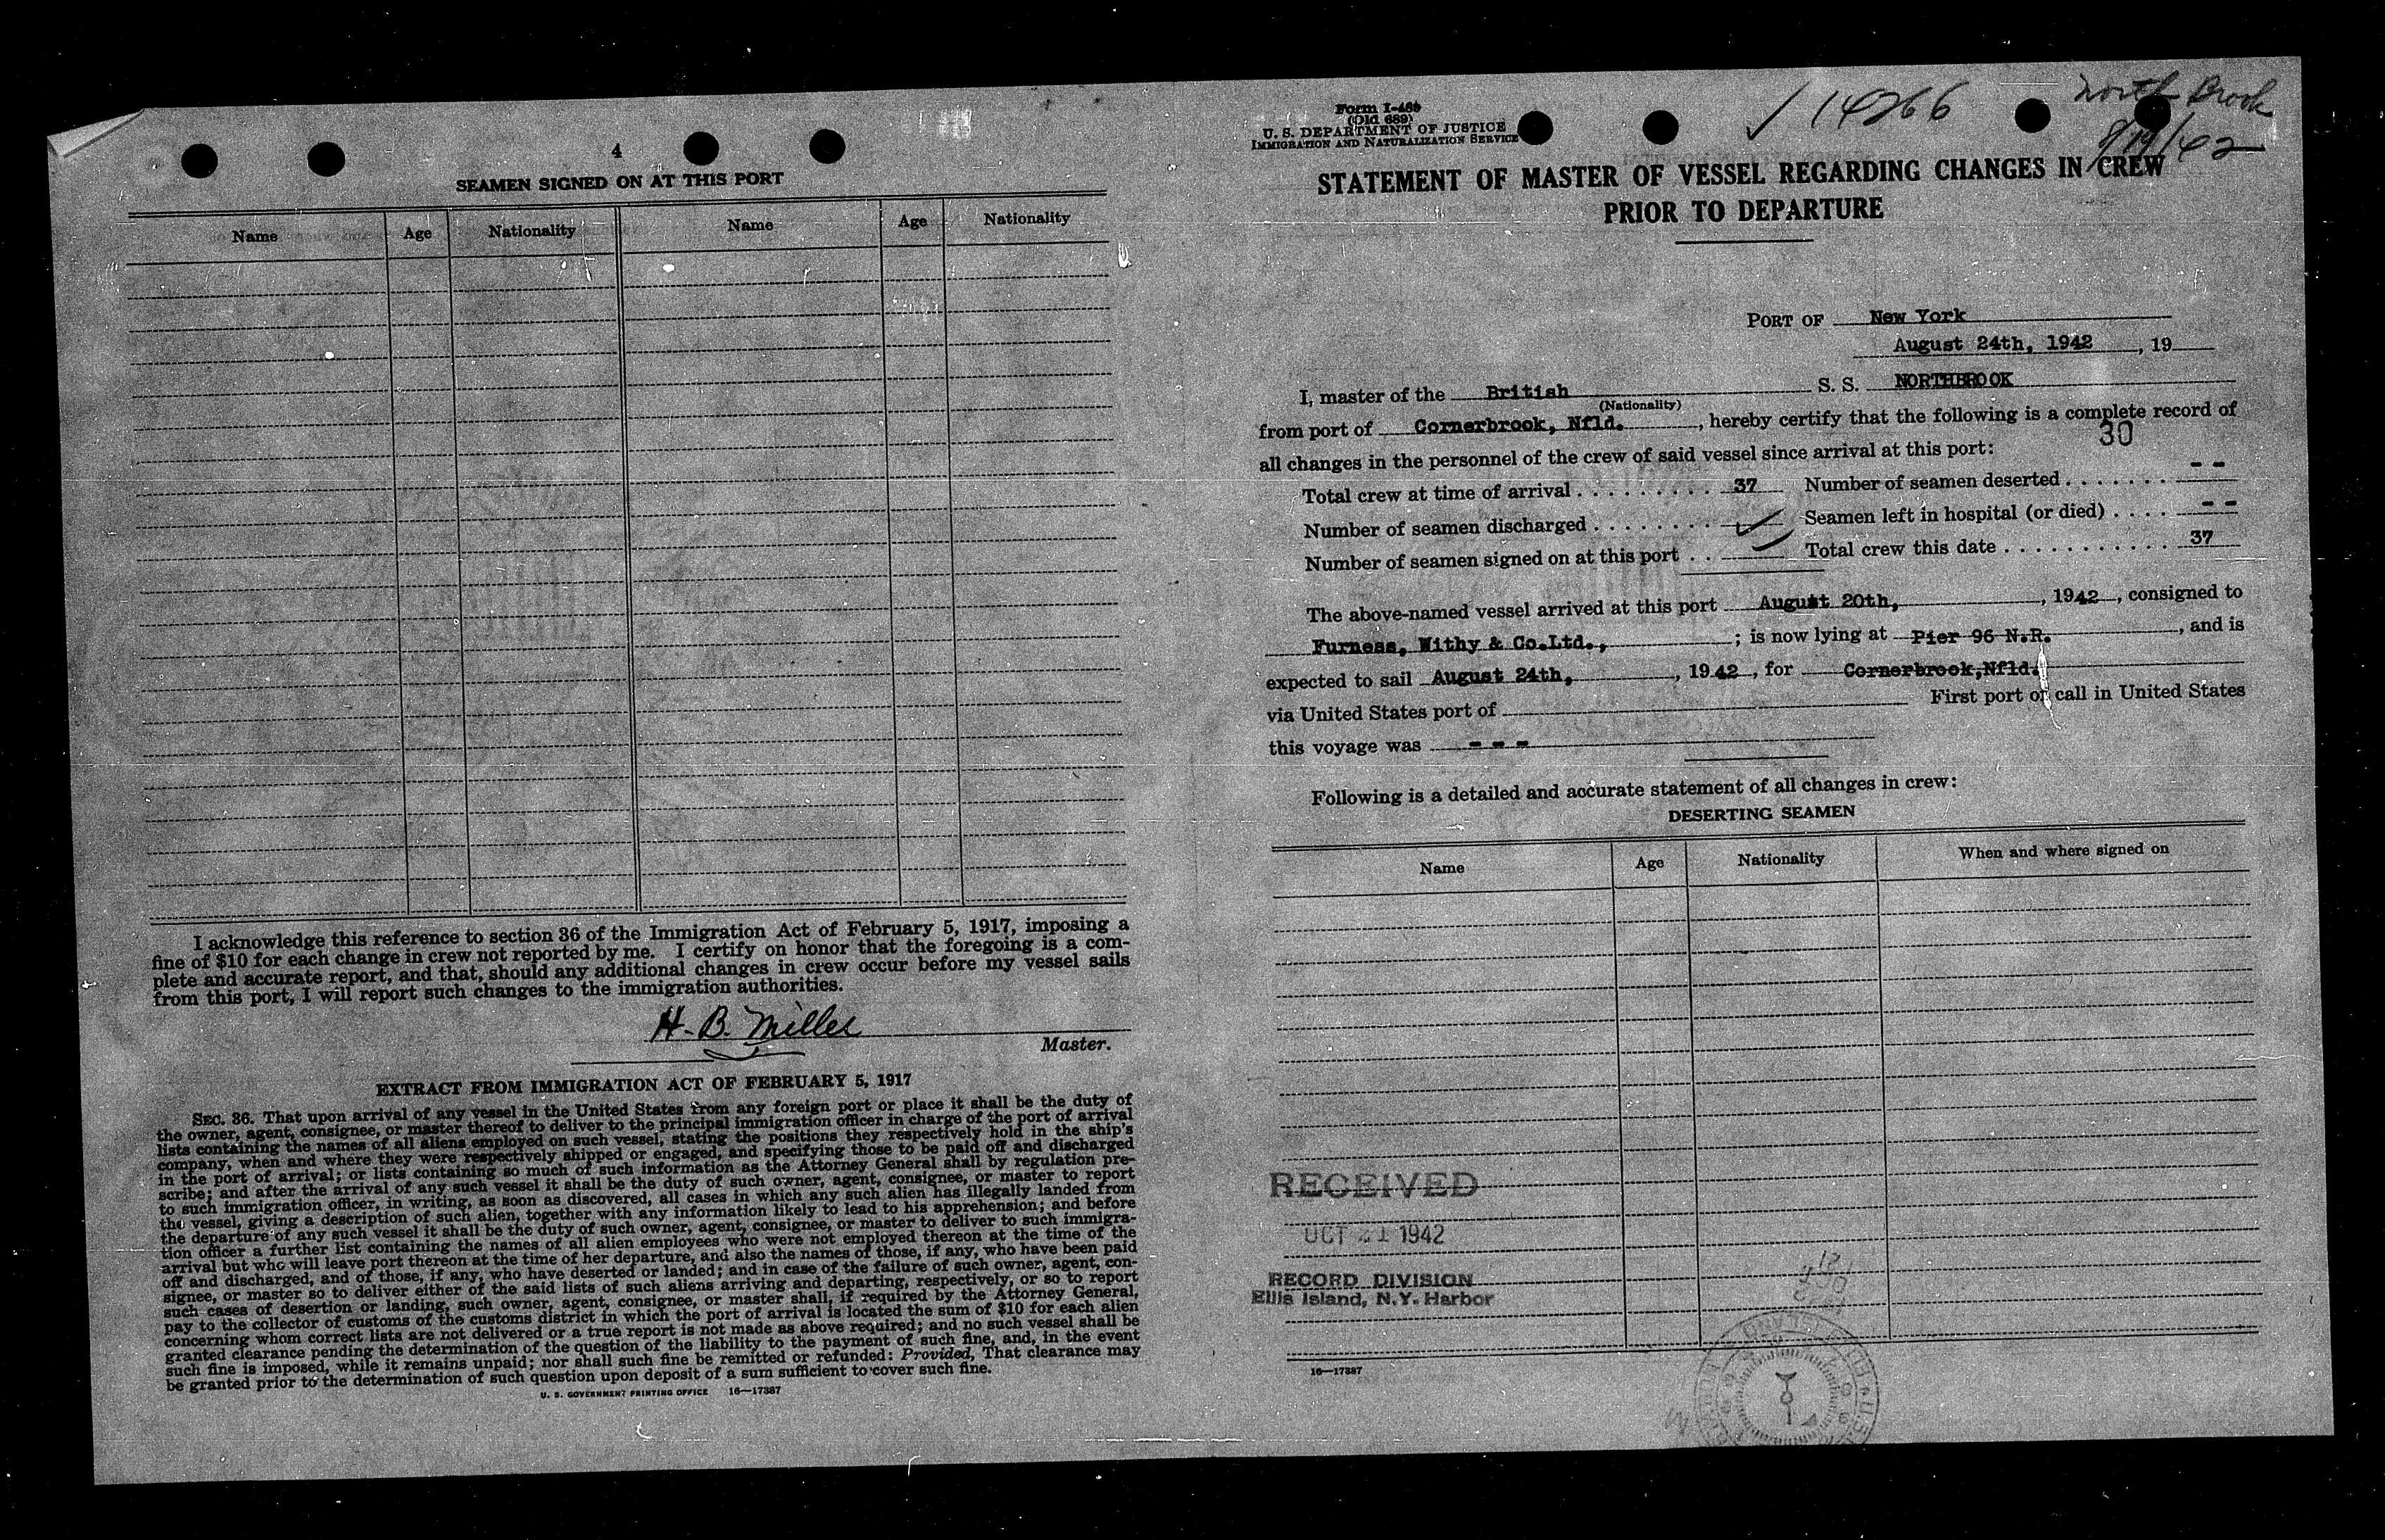 4
SEAMEN SIGNED ON AT THIS PORT
Name Age Nationality Name Age Nationality
I acknowledge this reference to section 36 of the Immigration Act of February 5, 1917, imposing a
fine of $10 for each change in crew not reported by me. I certify on honor that the foregoing is a com-
plete and accurate report, and that, should any additional changes in crew occur before my vessel sails
from this port, I will report such changes to the immigration authorities.
H. B. Miller
Master.
EXTRACT FROM IMMIGRATION ACT OF FEBRUARY 5, 1917
SEC. 36. That upon arrival of any vessel in the United States from any foreign port or place it shall be the duty of
the owner, agent, consignee, or master thereof to deliver to the principal immigration officer in charge of the port of arrival
lists containing the names of all aliens employed on such vessel, stating the positions they respectively hold in the ship's
company, when and where they were respectively shipped or engaged, and specifying those to be paid off and discharged
in the port of arrival; or lists containing so much of such information as the Attorney General shall by regulation pre-
scribe; and after the arrival of any such vessel it shall be the duty of such owner, agent, consignee, or master to report
to such immigration officer, in writing, as soon as discovered, all cases in which any such alien has illegally landed from
the vessel, giving a description of such alien, together with any information likely to lead to his apprehension; and before
the departure of any such vessel it shall be the duty of such owner, agent, consignee, or master to deliver to such immigra-
tion officer a further list containing the names of all alien employees who were not employed thereon at the time of the
arrival but who will leave port thereon at the time of her departure, and also the names of those, if any, who have been paid
off and discharged, and of those, if any, who have deserted or landed; and in case of the failure of such owner, agent, con-
signee, or master so to deliver either of the said lists of such aliens arriving and departing, respectively, or so to report
such cases of desertion or landing, such owner, agent, consignee, or master shall, if required by the Attorney General,
pay to the collector of customs of the customs district in which the port of arrival is located the sum of $10 for each alien
concerning whom correct lists are not delivered or a true report is not made as above required; and no such vessel shall be
granted clearance pending the determination of the question of the liability to the payment of such fine, and, in the event
such fine is imposed, while it remains unpaid; nor shall such fine be remitted or refunded: Provided, That clearance may
be granted prior to the determination of such question upon deposit of a sum sufficient to cover such fine.
U. S. GOVERNMENT PRINTING OFFICE 16—17387
Form I-489
(Old 689)
U. S. DEPARTMENT OF JUSTICE
IMMIGRATION AND NATURALIZATION SERVICE
✓ 14266
North Brook
8/19/42
STATEMENT OF MASTER OF VESSEL REGARDING CHANGES IN CREW
PRIOR TO DEPARTURE
PORT OF New York
August 24th, 1942, 19
I, master of the British S. S. NORTHBROOK
(Nationality)
from port of Cornerbrook, Nfld., hereby certify that the following is a complete record of
30
all changes in the personnel of the crew of said vessel since arrival at this port:
Total crew at time of arrival . . . . . . . . . 37 Number of seamen deserted . . . . . . . - -
Number of seamen discharged . . . . . . . . ✓ Seamen left in hospital (or died) . . . . - -
Number of seamen signed on at this port . . Total crew this date . . . . . . . . . . . . 37
The above-named vessel arrived at this port August 20th, , 1942, consigned to
Furness, Withy & Co.Ltd., ; is now lying at Pier 96 N.R. , and is
expected to sail August 24th, , 1942, for Cornerbrook,Nfld.
via United States port of First port of call in United States
this voyage was - - -
Following is a detailed and accurate statement of all changes in crew:
DESERTING SEAMEN
Name Age Nationality When and where signed on
RECEIVED
OCT 21 1942
RECORD DIVISION
Ellis Island, N.Y. Harbor
16—17387